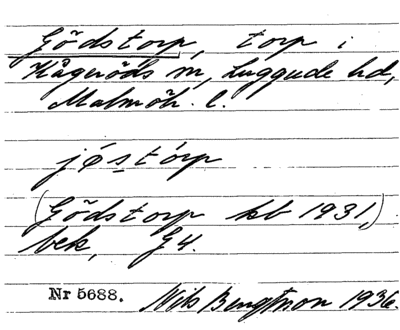 Gödstorp, torp i
Kågeröds sn, Luggude hd,
Malmöh. l.
jǿstórp
(Gödstorp kb 1931,)
bek, G4.
Nr 5688. Nils Bengtsson 1936.